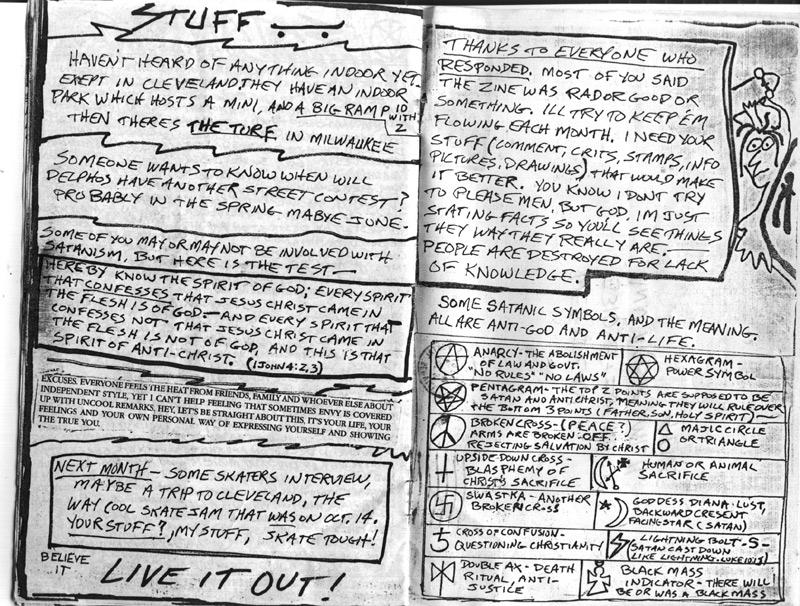 STUFF
HAVEN'T HEARD OF ANYTHING INDOOR YET
EXEPT IN CLEVELAND, THEY HAVE AN INDOOR
PARK WHICH HOSTS A MINI, AND A BIG RAMP 10
WITH
2
THEN THERES THE TURF IN MILWAUKEE
SOMEONE WANTS TO KNOW WHEN WILL
DELPHOS HAVE ANOTHER STREET CONTEST?
PROBABLY IN THE SPRING MABYE JUNE.
SOME OF YOU MAY OR MAY NOT BE INVOLVED WITH
SATANISM, BUT HERE IS THE TEST—
HEREBY KNOW THE SPIRIT OF GOD; EVERY SPIRIT
THAT CONFESSES THAT JESUS CHRIST CAME IN
THE FLESH IS OF GOD— AND EVERY SPIRIT THAT
CONFESSES NOT THAT JESUS CHRIST CAME IN
THE FLESH IS NOT OF GOD, AND THIS IS THAT
SPIRIT OF ANTI-CHRIST. (1JOHN 4:2,3)
EXCUSES. EVERYONE FEELS THE HEAT FROM FRIENDS, FAMILY AND WHOEVER ELSE ABOUT
INDEPENDENT STYLE, YET I CAN'T HELP FEELING THAT SOMETIMES ENVY IS COVERED
UP WITH UNCOOL REMARKS. HEY, LET'S BE STRAIGHT ABOUT THIS, IT'S YOUR LIFE, YOUR
FEELINGS AND YOUR OWN PERSONAL WAY OF EXPRESSING YOURSELF AND SHOWING
THE TRUE YOU.
NEXT MONTH— SOME SKATERS INTERVIEW,
MAYBE A TRIP TO CLEVELAND, THE
WAY COOL SKATE JAM THAT WAS ON OCT. 14.
YOUR STUFF?, MY STUFF, SKATE TOUGH!
BELIEVE
IT
LIVE IT OUT!
THANKS TO EVERYONE WHO
RESPONDED. MOST OF YOU SAID
THE ZINE WAS RAD OR GOOD OR
SOMETHING. I'LL TRY TO KEEP EM
FLOWING EACH MONTH. I NEED YOUR
STUFF (COMMENT, CRITS, STAMPS, INFO
PICTURES, DRAWINGS) THAT WOULD MAKE
IT BETTER. YOU KNOW I DONT TRY
TO PLEASE MEN, BUT GOD. IM JUST
STATING FACTS SO YOU'LL SEE THINGS
THEY WAY THEY REALLY ARE.—
PEOPLE ARE DESTROYED FOR LACK
OF KNOWLEDGE.
SOME SATANIC SYMBOLS, AND THE MEANING.
ALL ARE ANTI-GOD AND ANTI-LIFE.
ANARCY- THE ABOLISHMENT
OF LAW AND GOVT.
"NO RULES" "NO LAWS"
HEXAGRAM-
POWER SYMBOL
PENTAGRAM- THE TOP 2 POINTS ARE SUPPOSED TO BE
SATAN AND ANTICHRIST, MEANING THEY WILL RULE OVER
THE BOTTOM 3 POINTS (FATHER, SON, HOLY SPIRIT)—
BROKEN CROSS- (PEACE?)
ARMS ARE BROKEN OFF.
REJECTING SALVATION BY CHRIST
MAGIC CIRCLE
OR TRIANGLE
UPSIDE DOWN CROSS-
BLASPHEMY OF
CHRIST'S SACRIFICE
HUMAN OR ANIMAL
SACRIFICE
SWASTKA- ANOTHER
BROKEN CROSS
GODDESS DIANA- LUST,
BACKWARD CRESENT
FACING STAR (SATAN)
CROSS OF CONFUSION-
QUESTIONING CHRISTIANITY
LIGHTNING BOLT -S-
SATAN CAST DOWN
LIKE LIGHTNING. LUKE 10:18
DOUBLE AX- DEATH
RITUAL, ANTI-
JUSTICE
BLACK MASS
INDICATOR- THERE WILL
BE OR WAS A BLACK MASS